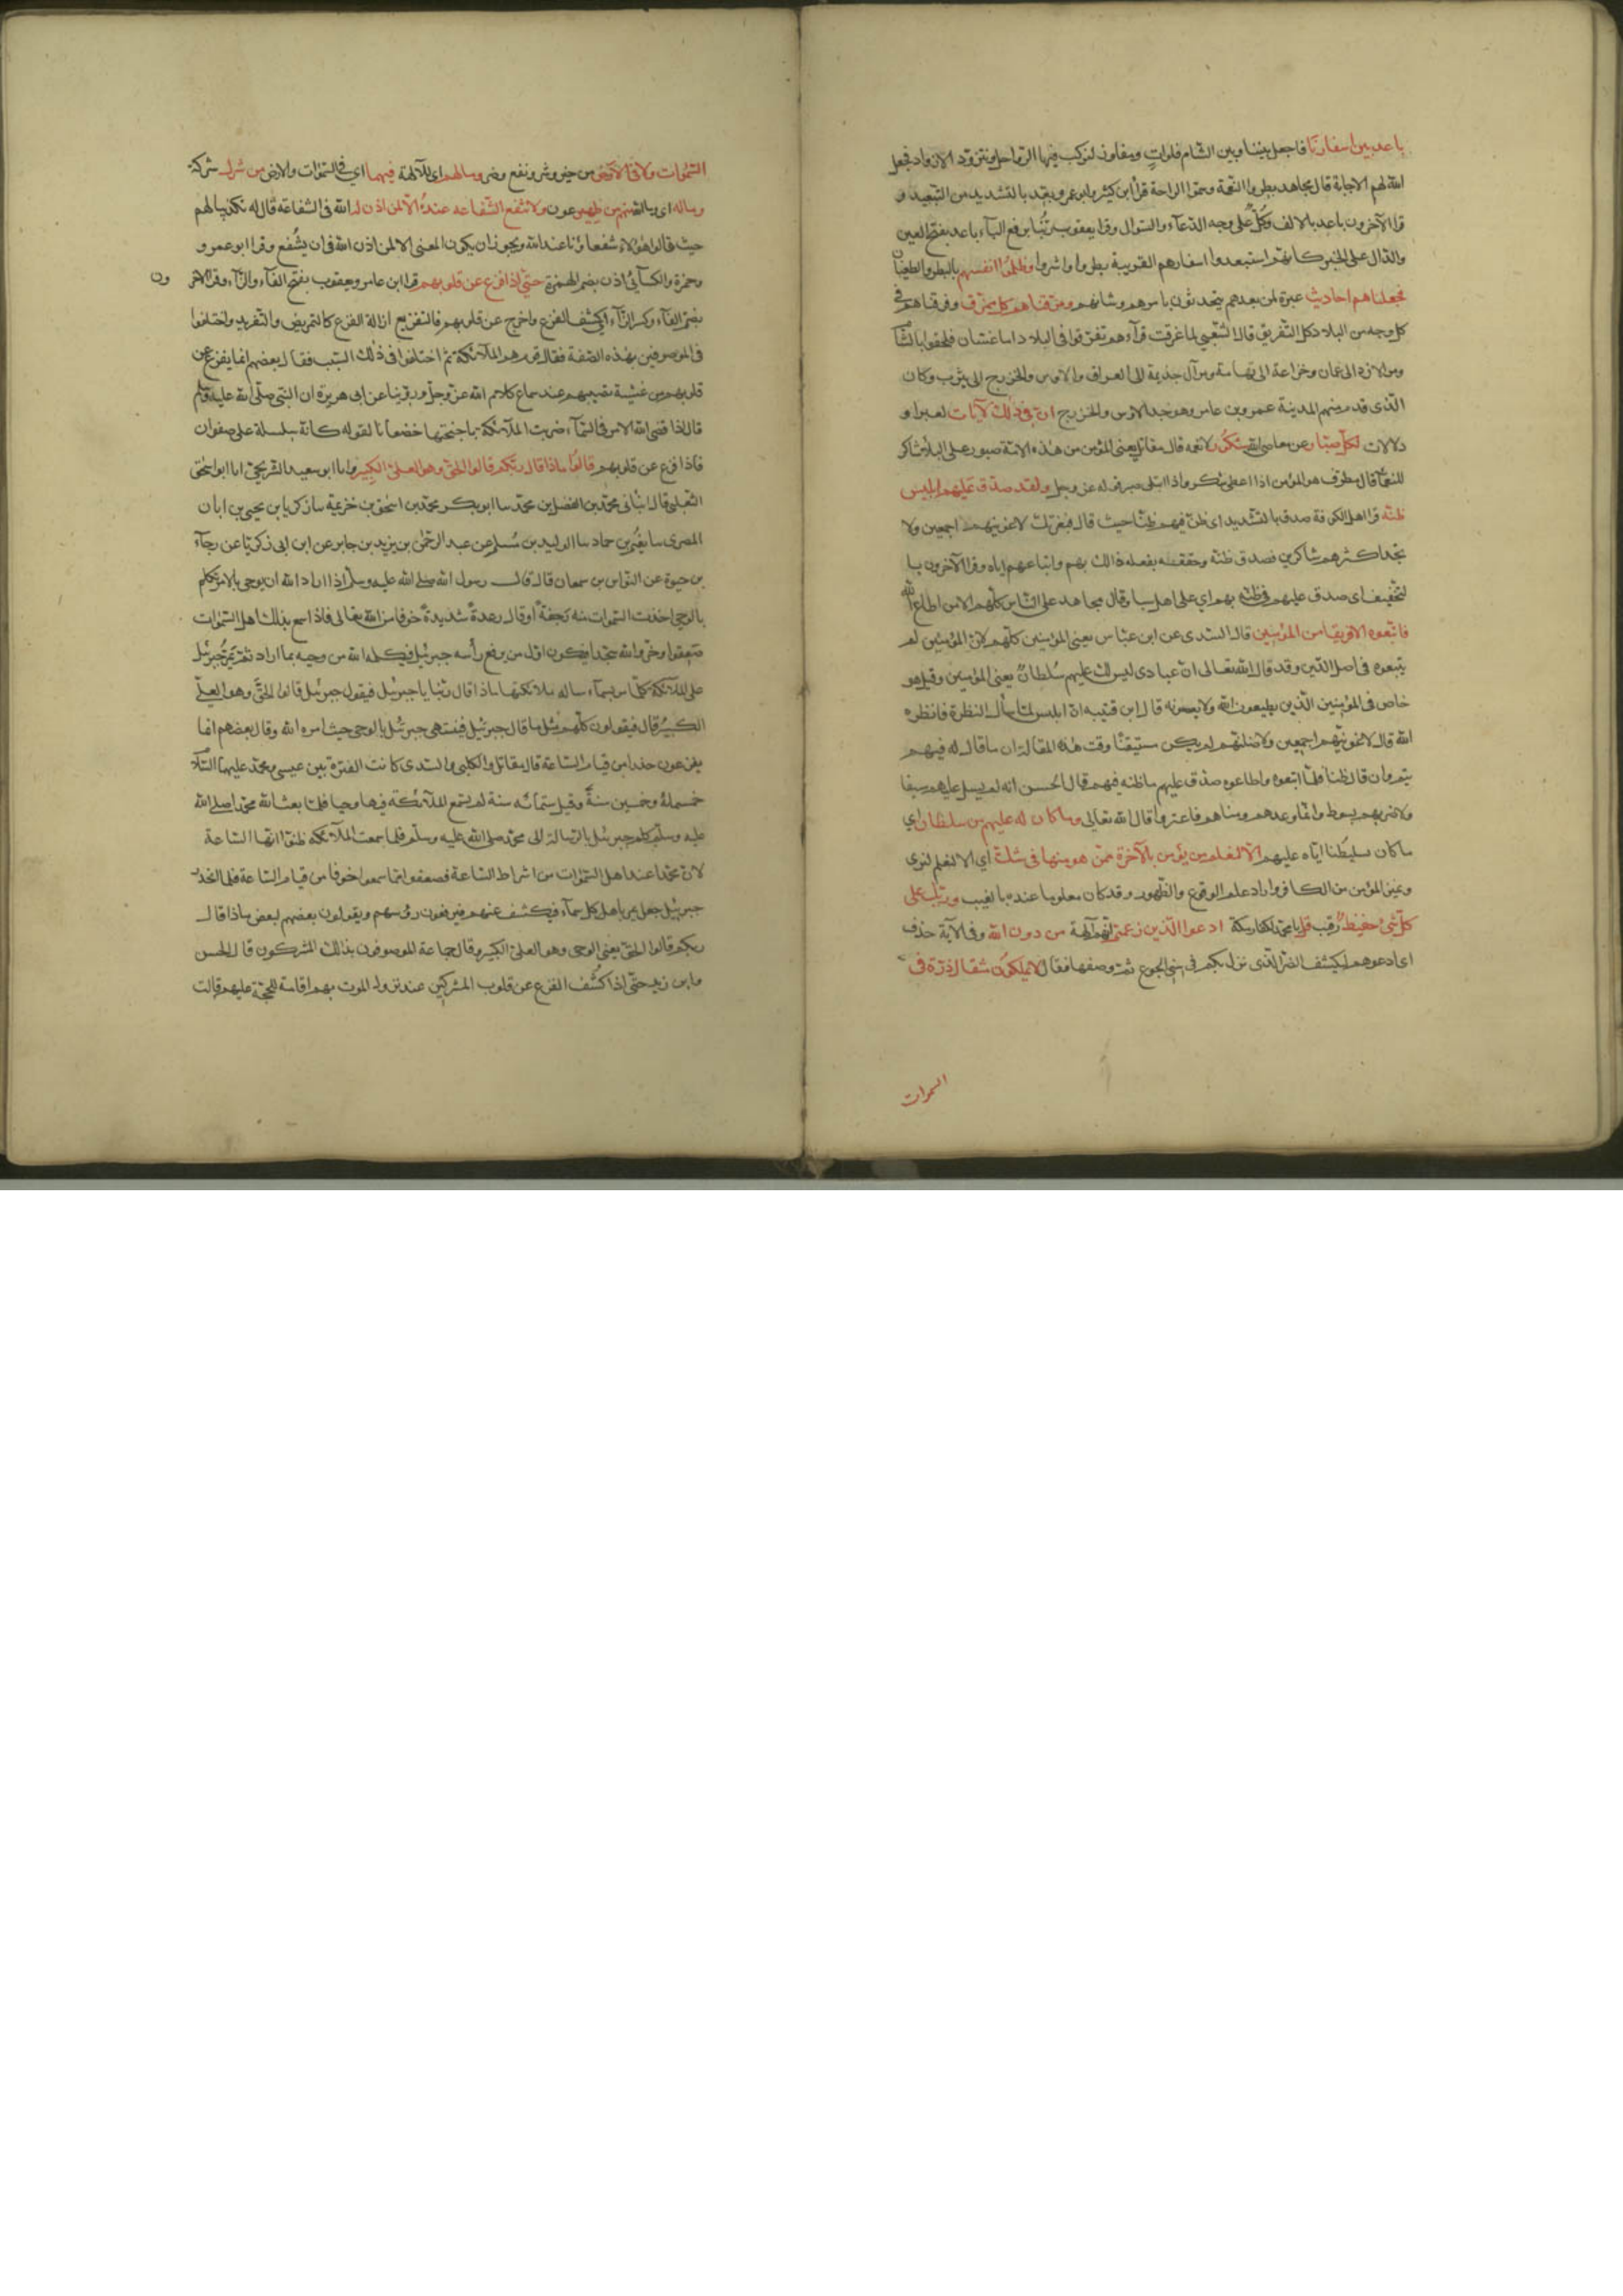 باعد بين اسفارنا فاجعل بيننا وبين الشام فلوات ومفاوز لنركب فيها الرواحل ونتزود الازواد فجعل
الله لهم الاجابة قال مجاهد بطروا النعمة وسئموا الراحة قرأ ابن كثير وابو عمرو بعد بالتشديد من التبعيد و
قرا الآخرون باعد بالالف وكل على وجه الدعآء والسوال وقرا يعقوب ربنا برفع البآء باعد بفتح العين
والدال على الخبر كانهم استبعدوا اسفارهم القريبة بطروا واشروا وظلموا انفسهم بالبطر والطغيان
فجعلناهم احاديث عبرة لمن بعدهم يتحدثون بامرهم وشانهم ومزقناهم كل ممزق وفرقناهم في
كل وجه من البلاد كل التفريق قال الشعبي لما غرقت قرآهم تفرقوا في البلاد اما غسّان فلحقوا بالشام
ومر الازد الى عمان وخزاعة الى تهامة ومر آل جذيمة الى العراق والاوس والخزرج الى يثرب وكان
الذى قدم منهم المدينة عمرو بن عامر وهو جد الاوس والخزرج ان في ذلك لآيات لعبرا و
دلالات لكل صبار عن معاصي الله شكور لانعمه قال مقاتل يعنى المؤمن من هذه الامة صبور على البلآء شاكر
للنعمآء قال مطرف هو المؤمن اذا اعطى شكر واذا ابتلى صبر قوله عز وجل ولقد صدق عليهم ابليس
ظنه قرا اهل الكوفة صدق بالتشديد اى ظن فيهم ظنا حيث قال فبعزتك لاغوينهم اجمعين ولا
تجد اكثرهم شاكرين فصدق ظنه وحققه بفعله ذالك بهم واتباعهم اياه وقرا الآخرون با
لتخفيف اى صدق عليهم في ظنه بهم اي على اهل سبا وقال مجاهد على الناس كلهم الا من اطاع الله
فاتبعوه الا فريقا من المؤمنين قال السدى عن ابن عباس يعنى المؤمنين كلهم لان المؤمنين لم
يتبعوه في اصل الدين وقد قال الله تعالى ان عبادى ليس لك عليهم سلطان يعنى المؤمنين وقيل هو
خاص في المؤمنين الذين يطيعون الله ولا يعصونه قال ابن قتيبه ان ابليس لما سأل النظرة فانظره
الله قال لاغوينهم اجمعين ولاضلنهم لم يكن مستيقنا وقت هذه المقالة ان ما قاله فيهم
يتم وان قال ظنا فلمّا اتبعوه واطاعوه صدق عليهم ما ظنه فيهم قال الحسن انه لم يسل عليهم سيفا
ولا ضربهم بسوط وانما وعدهم ومناهم فاعتروا قال الله تعالى وما كان له عليهم من سلطان اي
ما كان تسليطنا اياه عليهم الا لنعلم من يؤمن بالآخرة ممن هو منها في شك اي الا لنعلم لنرى
ونميز المؤمن من الكافر واراد علم الوقوع والظهور وقد كان معلوما عنده بالغيب وربك على
كل شئ حفيظ رقيب قل يا محمد لكفار مكة ادعوا الذين زعمتم انهم آلهة من دون الله وفي الآية حذف
اى ادعوهم ليكشف الضر الذى نزل بكم في سني الجوع ثم وصفها فقال لا يملكون مثقال ذرة في
السموات
السموات ولا في الارض من خير وشر ونفع وضر وما لهم اى للآلهة فيهما اى في السموات والارض من شرك شركة
وماله اى وما لله منهم من ظهير عون ولا تنفع الشفاعة عنده الا لمن اذن له الله في الشفاعة قاله تكذيبا لهم
حيث قالوا هؤلاء شفعاؤنا عند الله ويجوز ان يكون المعنى الا لمن اذن الله في ان يشفع وقرا ابو عمرو
وحمزة والكسآئي اذن بضم الهمزة حتى اذا فزع عن قلوبهم قرا ابن عامر ويعقوب بفتح الفآء والزآء وقرا الآخر ون
بضم الفآء وكسر الزآء اى كشف الفزع واخرج عن قلوبهم فالتفزيع ازالة الفزع كالتمريض والتقريد واختلفوا
في الموصوفين بهذه الصفة فقال قوم هم الملآئكة ثم اختلفوا في ذلك السبب فقال بعضهم انما يفزع عن
قلوبهم من غشية تصيبهم عند سماع كلام الله عز وجل وروينا عن ابى هريرة ان النبي صلى الله عليه وسلم
قال اذا قضى الله الامر في السمآء ضربت الملآئكة باجنحتها خضعانا لقوله كانه سلسلة على صفوان
فاذا فزع عن قلوبهم قالوا ماذا قال ربكم قالوا الحق وهو العلى الكبير وانا ابو سعيد الشريحي انا ابو اسحق
الثعلبى قال انبانى محمد بن الفضل بن محمد سا ابو بكر محمد بن اسحق بن خزيمة سا زكريا بن يحيى بن ابان
المصرى سا نعيم بن حماد سا الوليد بن مسلم عن عبد الرحمن بن يزيد بن جابر عن ابن ابى زكريا عن رجآء
بن حيوة عن النواس بن سمعان قال قال رسول الله صلى الله عليه وسلم اذا اراد الله ان يوحى بالامر تكلم
بالوحي اخذت السموات منه رجفة او قال رعدة شديدة خوفا من الله تعالى فاذا سمع بذلك اهل السموات
صعقوا وخروا لله سجدا فيكون اول من رفع رأسه جبرئيل فيكلمه الله من وحيه بما اراد ثم يمر جبرئيل
على الملآئكة كلما مر بسمآء ساله ملائكتها ماذا قال ربنا يا جبرئيل فيقول جبرئيل قالوا الحق وهو العلي
الكبير قال فيقولون كلهم مثل ما قال جبرئيل فينتهى جبرئيل بالوحى حيث امره الله وقال بعضهم انما
يفزعون حذرا من قيام الساعة قال مقاتل والكلبى والسدى كانت الفترة بين عيسى ومحمد عليهما السلام
خمسمائة وخمسين سنة وقيل ستمائه سنة لم تسمع الملآئكة فيها وحيا فلما بعث الله محمدا صلى الله
عليه وسلم كلم جبرئيل بالرسالة الى محمد صلى الله عليه وسلم فلما سمعت الملآئكه ظنوا انها الساعة
لان محمدا عند اهل السموات من اشراط الساعة فصعقوا مما سمعوا خوفا من قيام الساعة فلما انحدر
جبرئيل جعل يمر باهل كل سمآء فيكشف عنهم فيرفعون رؤسهم ويقولون بعضهم لبعض ماذا قال
ربكم قالوا الحق يعنى الوحى وهو العلى الكبير وقال جماعة الموصوفون بذالك المشركون قال الحسن
وابن زيد حتى اذا كشف الفزع عن قلوب المشركين عند نزول الموت بهم اقامة للحجة عليهم قالت